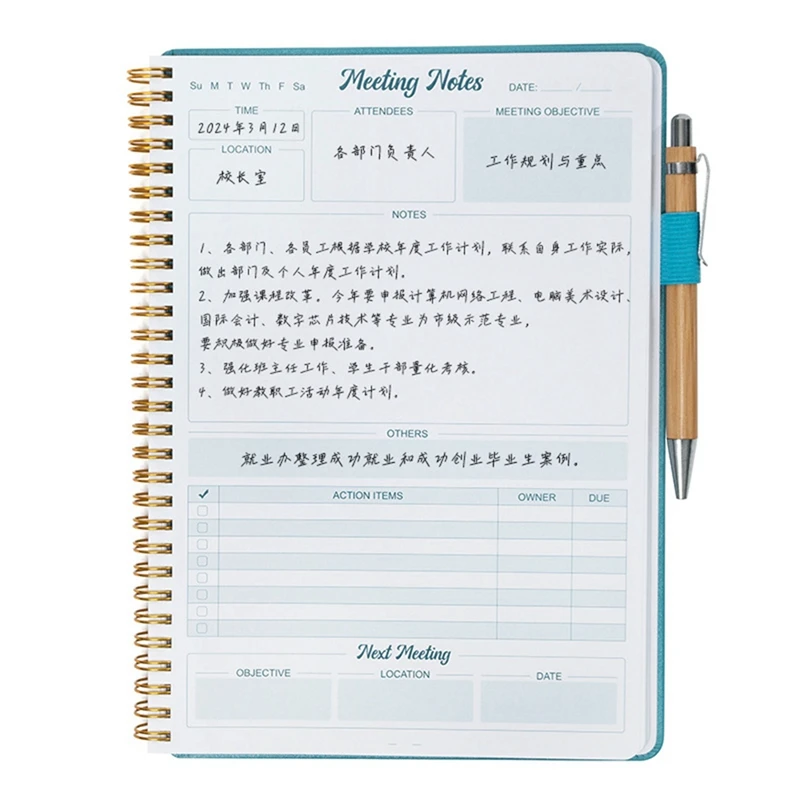 Su M T W Th F Sa Meeting Notes DATE: ____ / ____
TIME
2024年3月12日
LOCATION
校长室
ATTENDEES
各部门负责人
MEETING OBJECTIVE
工作规划与重点
NOTES
1、各部门、各员工根据学校年度工作计划，联系自身工作实际，
做出部门及个人年度工作计划。
2、加强课程改革。今年要申报计算机网络工程、电脑美术设计、
国际会计、数字芯片技术等专业为市级示范专业，
要积极做好专业申报准备。
3、强化班主任工作、学生干部量化考核。
4、做好教职工活动年度计划。
OTHERS
就业办整理成功就业和成功创业毕业生案例。
✓ ACTION ITEMS OWNER DUE
Next Meeting
OBJECTIVE LOCATION DATE